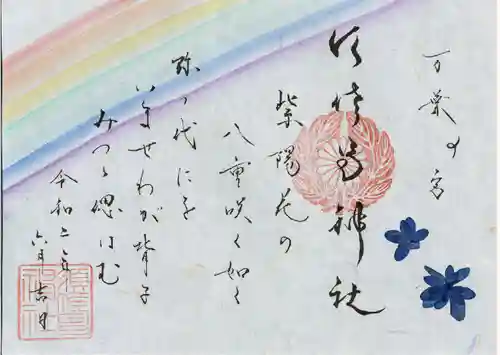 万葉の宮
神社
紫陽花の
八重咲く如く
弥つ代にを
いませわが背子
みつゝ偲はむ
令和二年
六月吉日